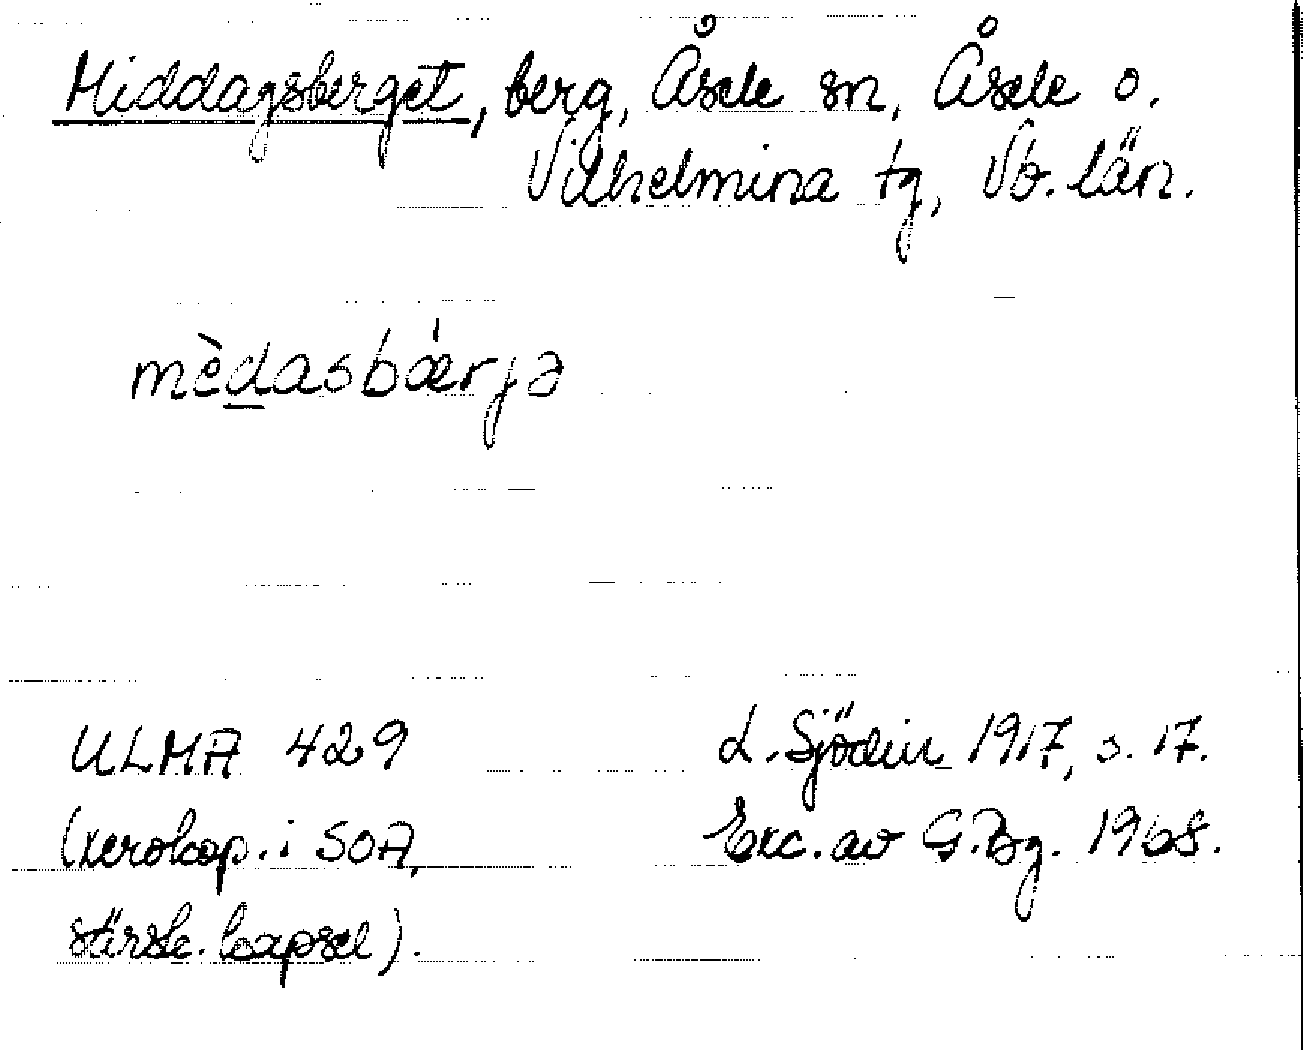 Middagsberget, berg, Åsele sn, Åsele o.
Vilhelmina tg, Vb. län.
mèdasbǽrjə
ULMA 429
(xerokop. i SOA,
särsk. kapsel).
L. Sjödin 1917, s. 17.
Exc. av G. Bg. 1968.